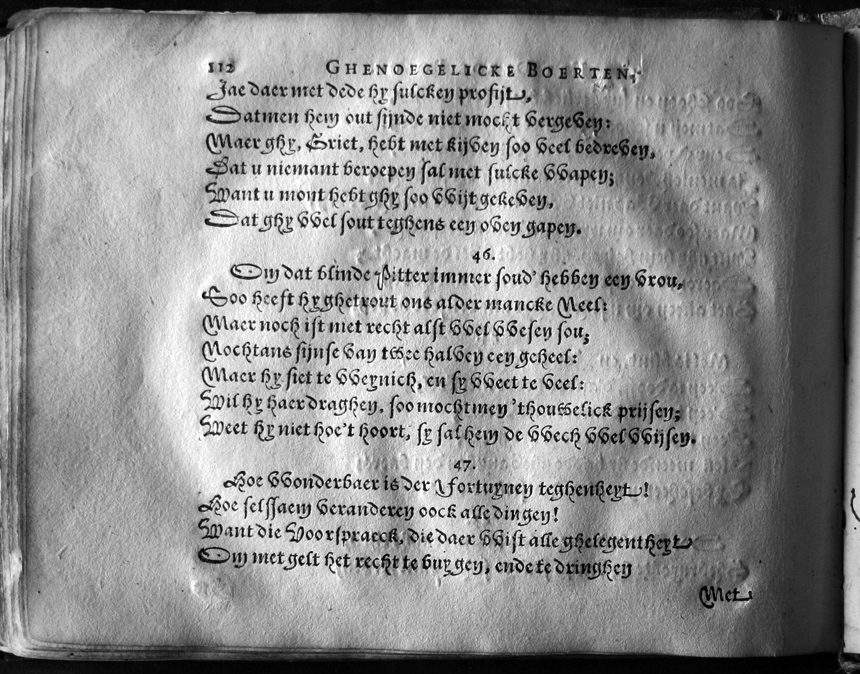 112 GHENOEGELICKE BOERTEN,
Jae daer met dede hy sulcken profijt,
Datmen hem out sijnde niet mocht vergeven:
Maer ghy, Griet, hebt met kijven soo veel bedreven,
Dat u niemant beroepen sal met sulcke vvapen;
Want u mont hebt ghy soo vvijt gekeven,
Dat ghy vvel sout teghens een oven gapen.
46.
Om dat blinde Pitter immer soud' hebben een vrou,
Soo heeft hy ghetrout ons alder mancke Neel:
Maer noch ist met recht alst vvel vvesen sou;
Nochtans sijnse van twee halven een geheel:
Maer hy siet te vveynich, en sy vveet te veel:
Wil hy haer draghen, soo mochtmen 'thousselick prijsen;
Weet hy niet hoe't hoort, sy sal hem de vvech vvel vvijsen.
47.
Hoe vvonderbaer is der Fortuynen teghenheyt!
Hoe selssaem veranderen oock alle dingen!
Want die Voorspraeck, die daer vvist alle ghelegentheyt
Om met gelt het recht te buygen, ende te dringhen
Met